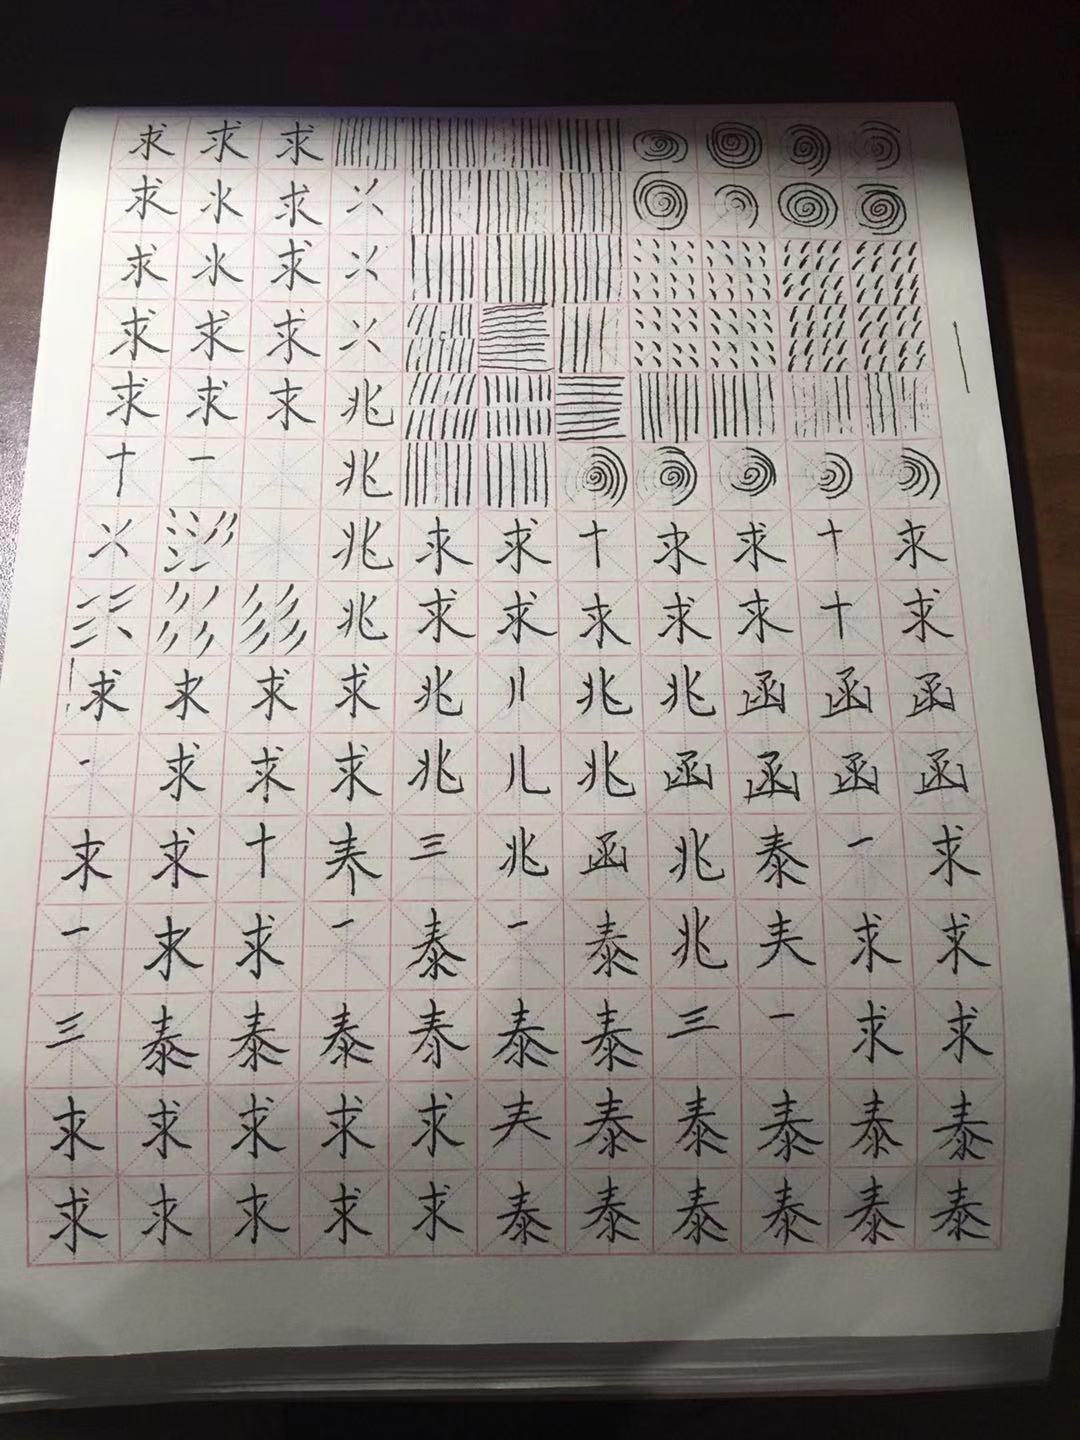 求 求 求
求 氺 求
求 氺 求
求 求 求
求 求 求 兆
十 一 兆
兆 求 求 十 求 求 十 求
兆 求 求 求 求 求 十 求
求 求 求 求 兆 兆 兆 函 函 函
一 求 求 求 兆 儿 兆 函 函 函 函
求 求 十 三 兆 函 兆 泰 一 求
一 求 求 一 泰 一 泰 兆 𡗗 求 求
三 泰 泰 泰 泰 泰 泰 三 一 求 求
求 求 求 求 求 𡗗 泰 泰 泰 泰 泰
求 求 求 求 求 泰 泰 泰 泰 泰 泰